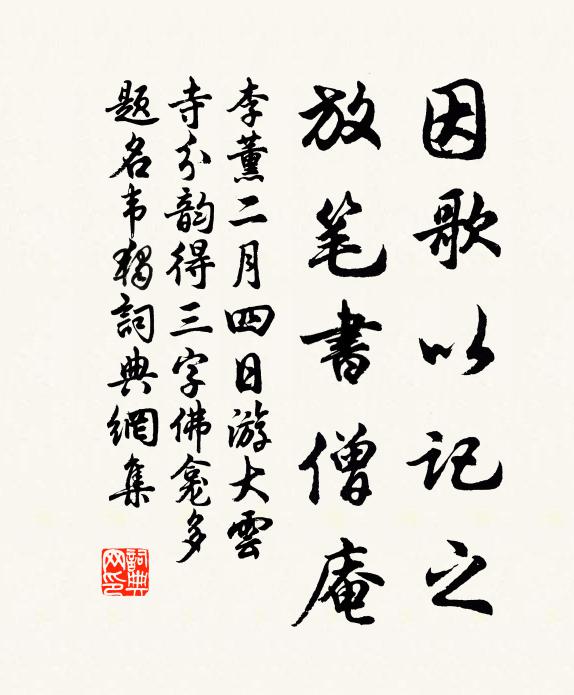 因歌以记之
放笔書僧庵
李薰二月四日游大雲
寺分韵得三字佛龛多
题名韦獨詞典網集
詞典网印